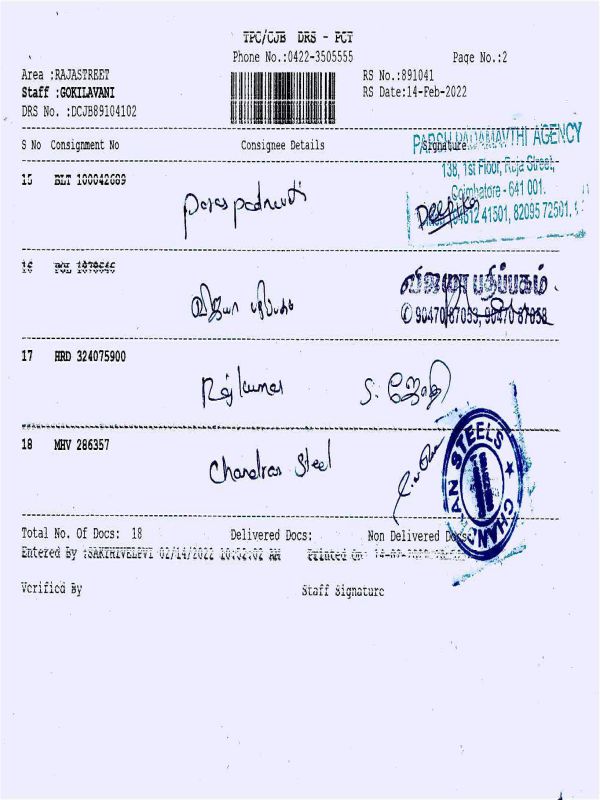 TPC/CJB DRS - PCT
Phone No.:0422-3505555
Page No.:2
Area :RAJASTREET
RS No.:891041
Staff :GOKILAVANI
RS Date:14-Feb-2022
DRS No. :DCJB89104102
S No Consignment No Consignee Details Signature
PARSH PADAMAVTHI AGENCY
138, 1st Floor, Raja Street,
Coimbatore - 641 001.
15 BLT 100042689
Deepika
41501, 82095 72501,
16 POL 1878646
விஜயா பதிப்பகம்
விஜயா பதிப்பகம்
✆ 90470 87053, 90470 87058
17 HRD 324075900
Rajkumar S. ஜோதி
18 MHV 286357
Chandran Steel
CHANDRAN STEELS
Total No. Of Docs: 18 Delivered Docs: Non Delivered Docs:
Entered By :SAKTHIVELEVI 02/14/2022 10:52:02 AM Printed On
Verified By Staff Signature